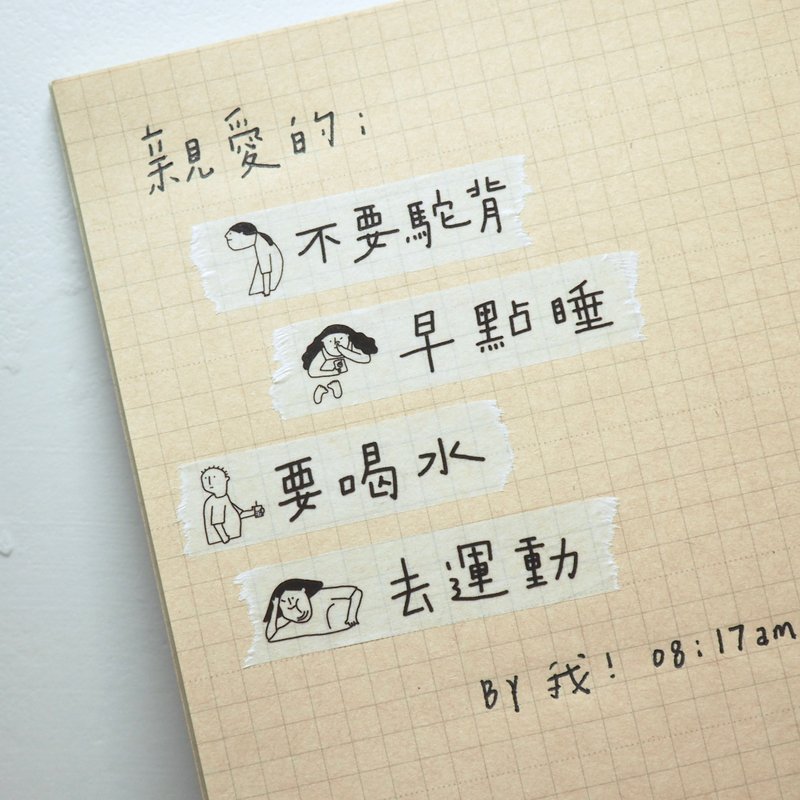 親愛的：
不要駝背
早點睡
要喝水
去運動
BY 我！ 08:17am